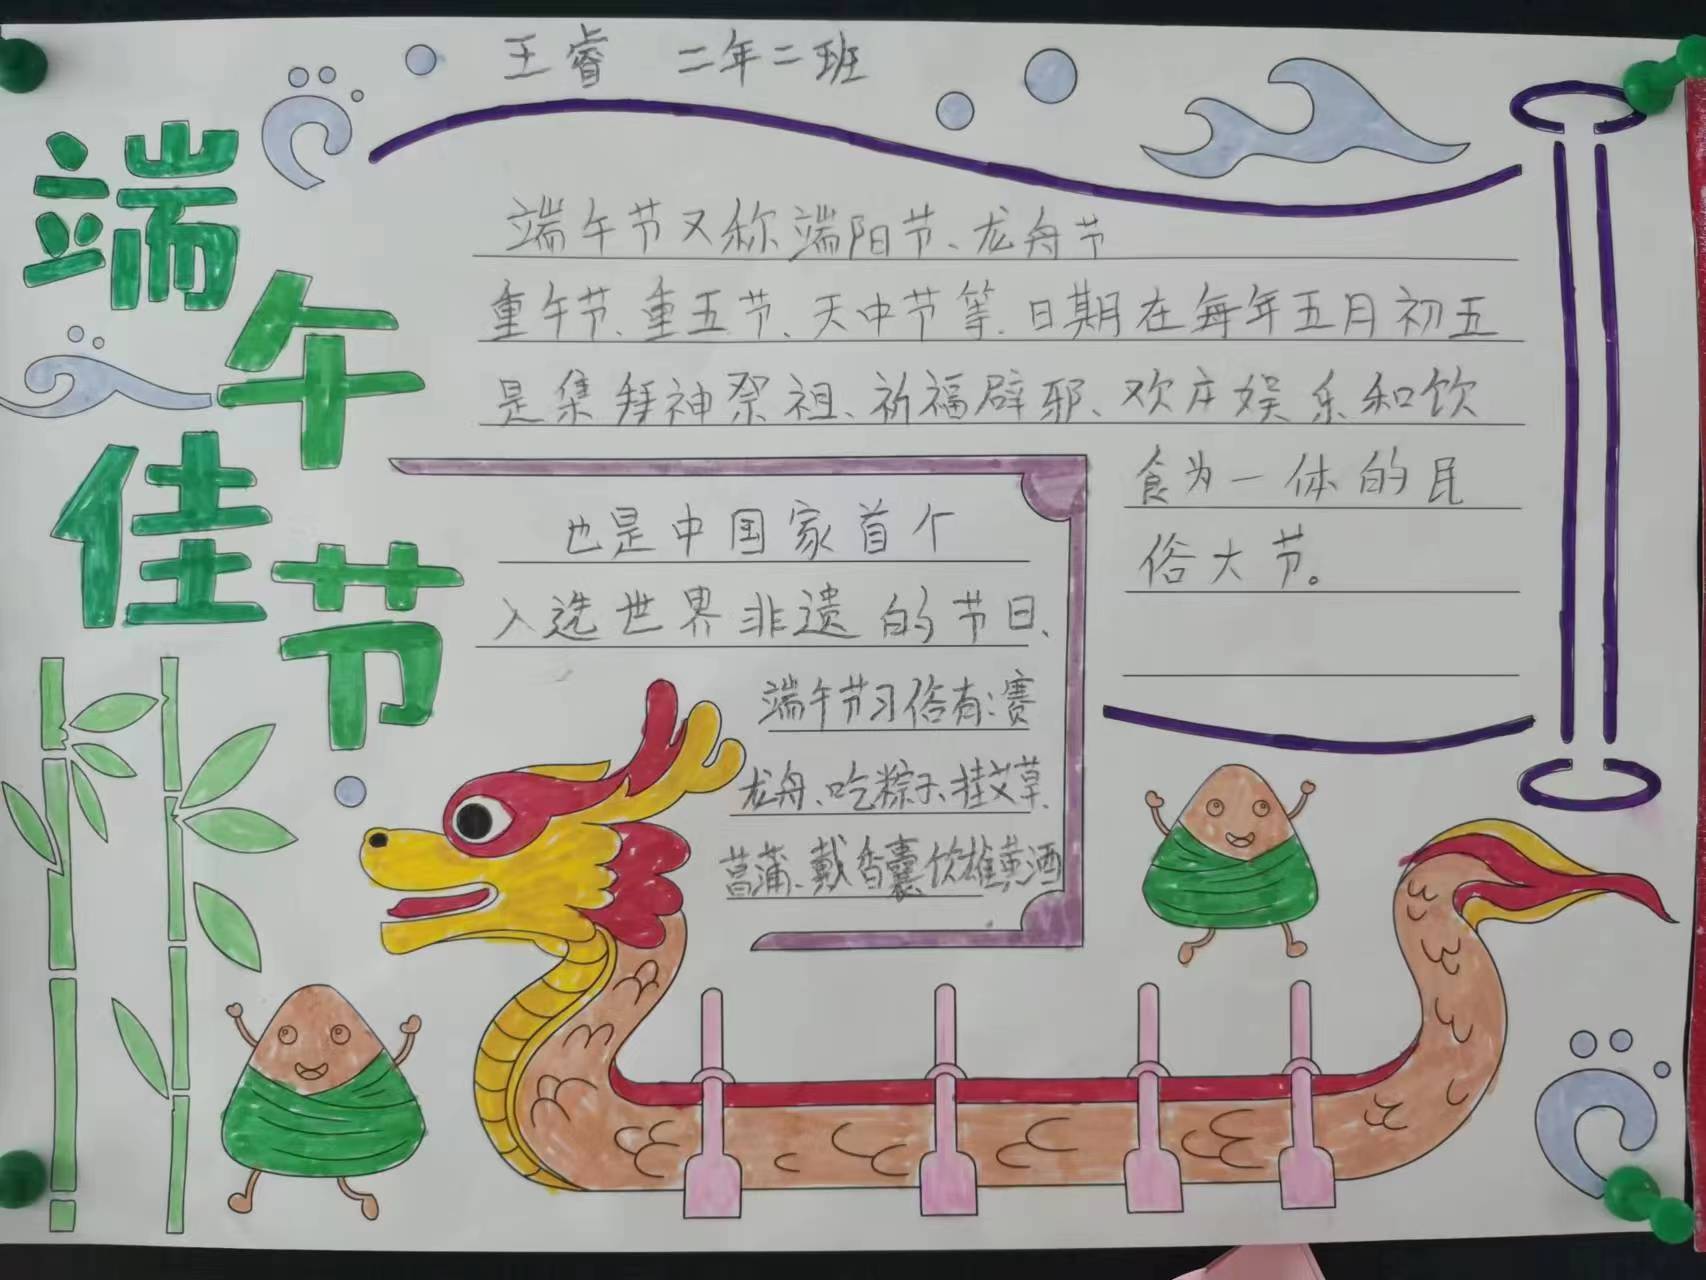 王睿 二年二班
端午佳节
端午节又称端阳节、龙舟节
重午节、重五节、天中节等.日期在每年五月初五
是集拜神祭祖、祈福辟邪、欢庆娱乐和饮
食为一体的民
俗大节。
也是中国家首个
入选世界非遗的节日、
端午节习俗有:赛
龙舟、吃粽子、挂艾草、
菖蒲、戴香囊饮雄黄酒